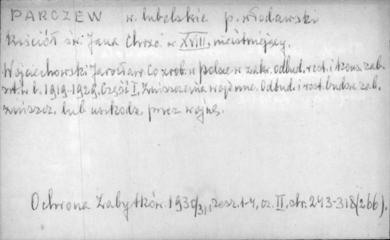 PARCZEW w. lubelskie p. włodawski
Kościół św. Jana Chrzc. w. XVIII, nieistniejący.
Wojciechowski Jarosław Co zrob. w Polsce w zakr. odbud. rest. i kons. zab.
szt. w l. 1919-1929. Część I, Zniszczenia wojenne. Odbud. i rest. budow. zab.
zniszcz. lub uszkodz. przez wojnę.
Ochrona Zabytków. 1930/31, zesz. 1-4, cz. II, str. 243-318 (266).